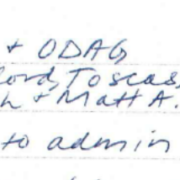 + ODAG
ford, Toscas,
+ Matt A.
to admin